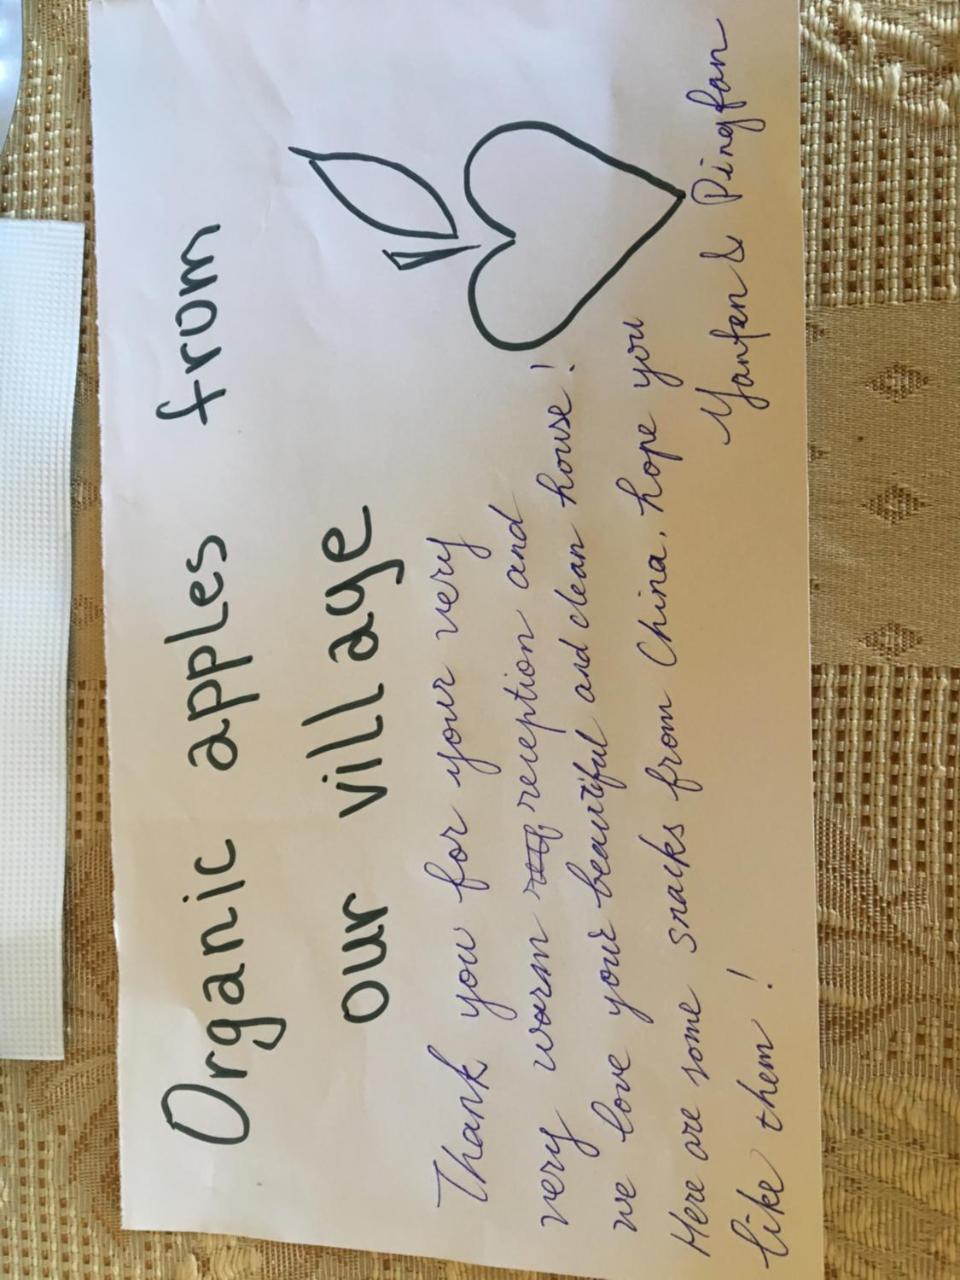 Organic apples from
our village
Thank you for your very
very warm reception and
we love your beautiful and clean house!
Here are some snacks from China, hope you
like them!
Yanfen & Pingfan